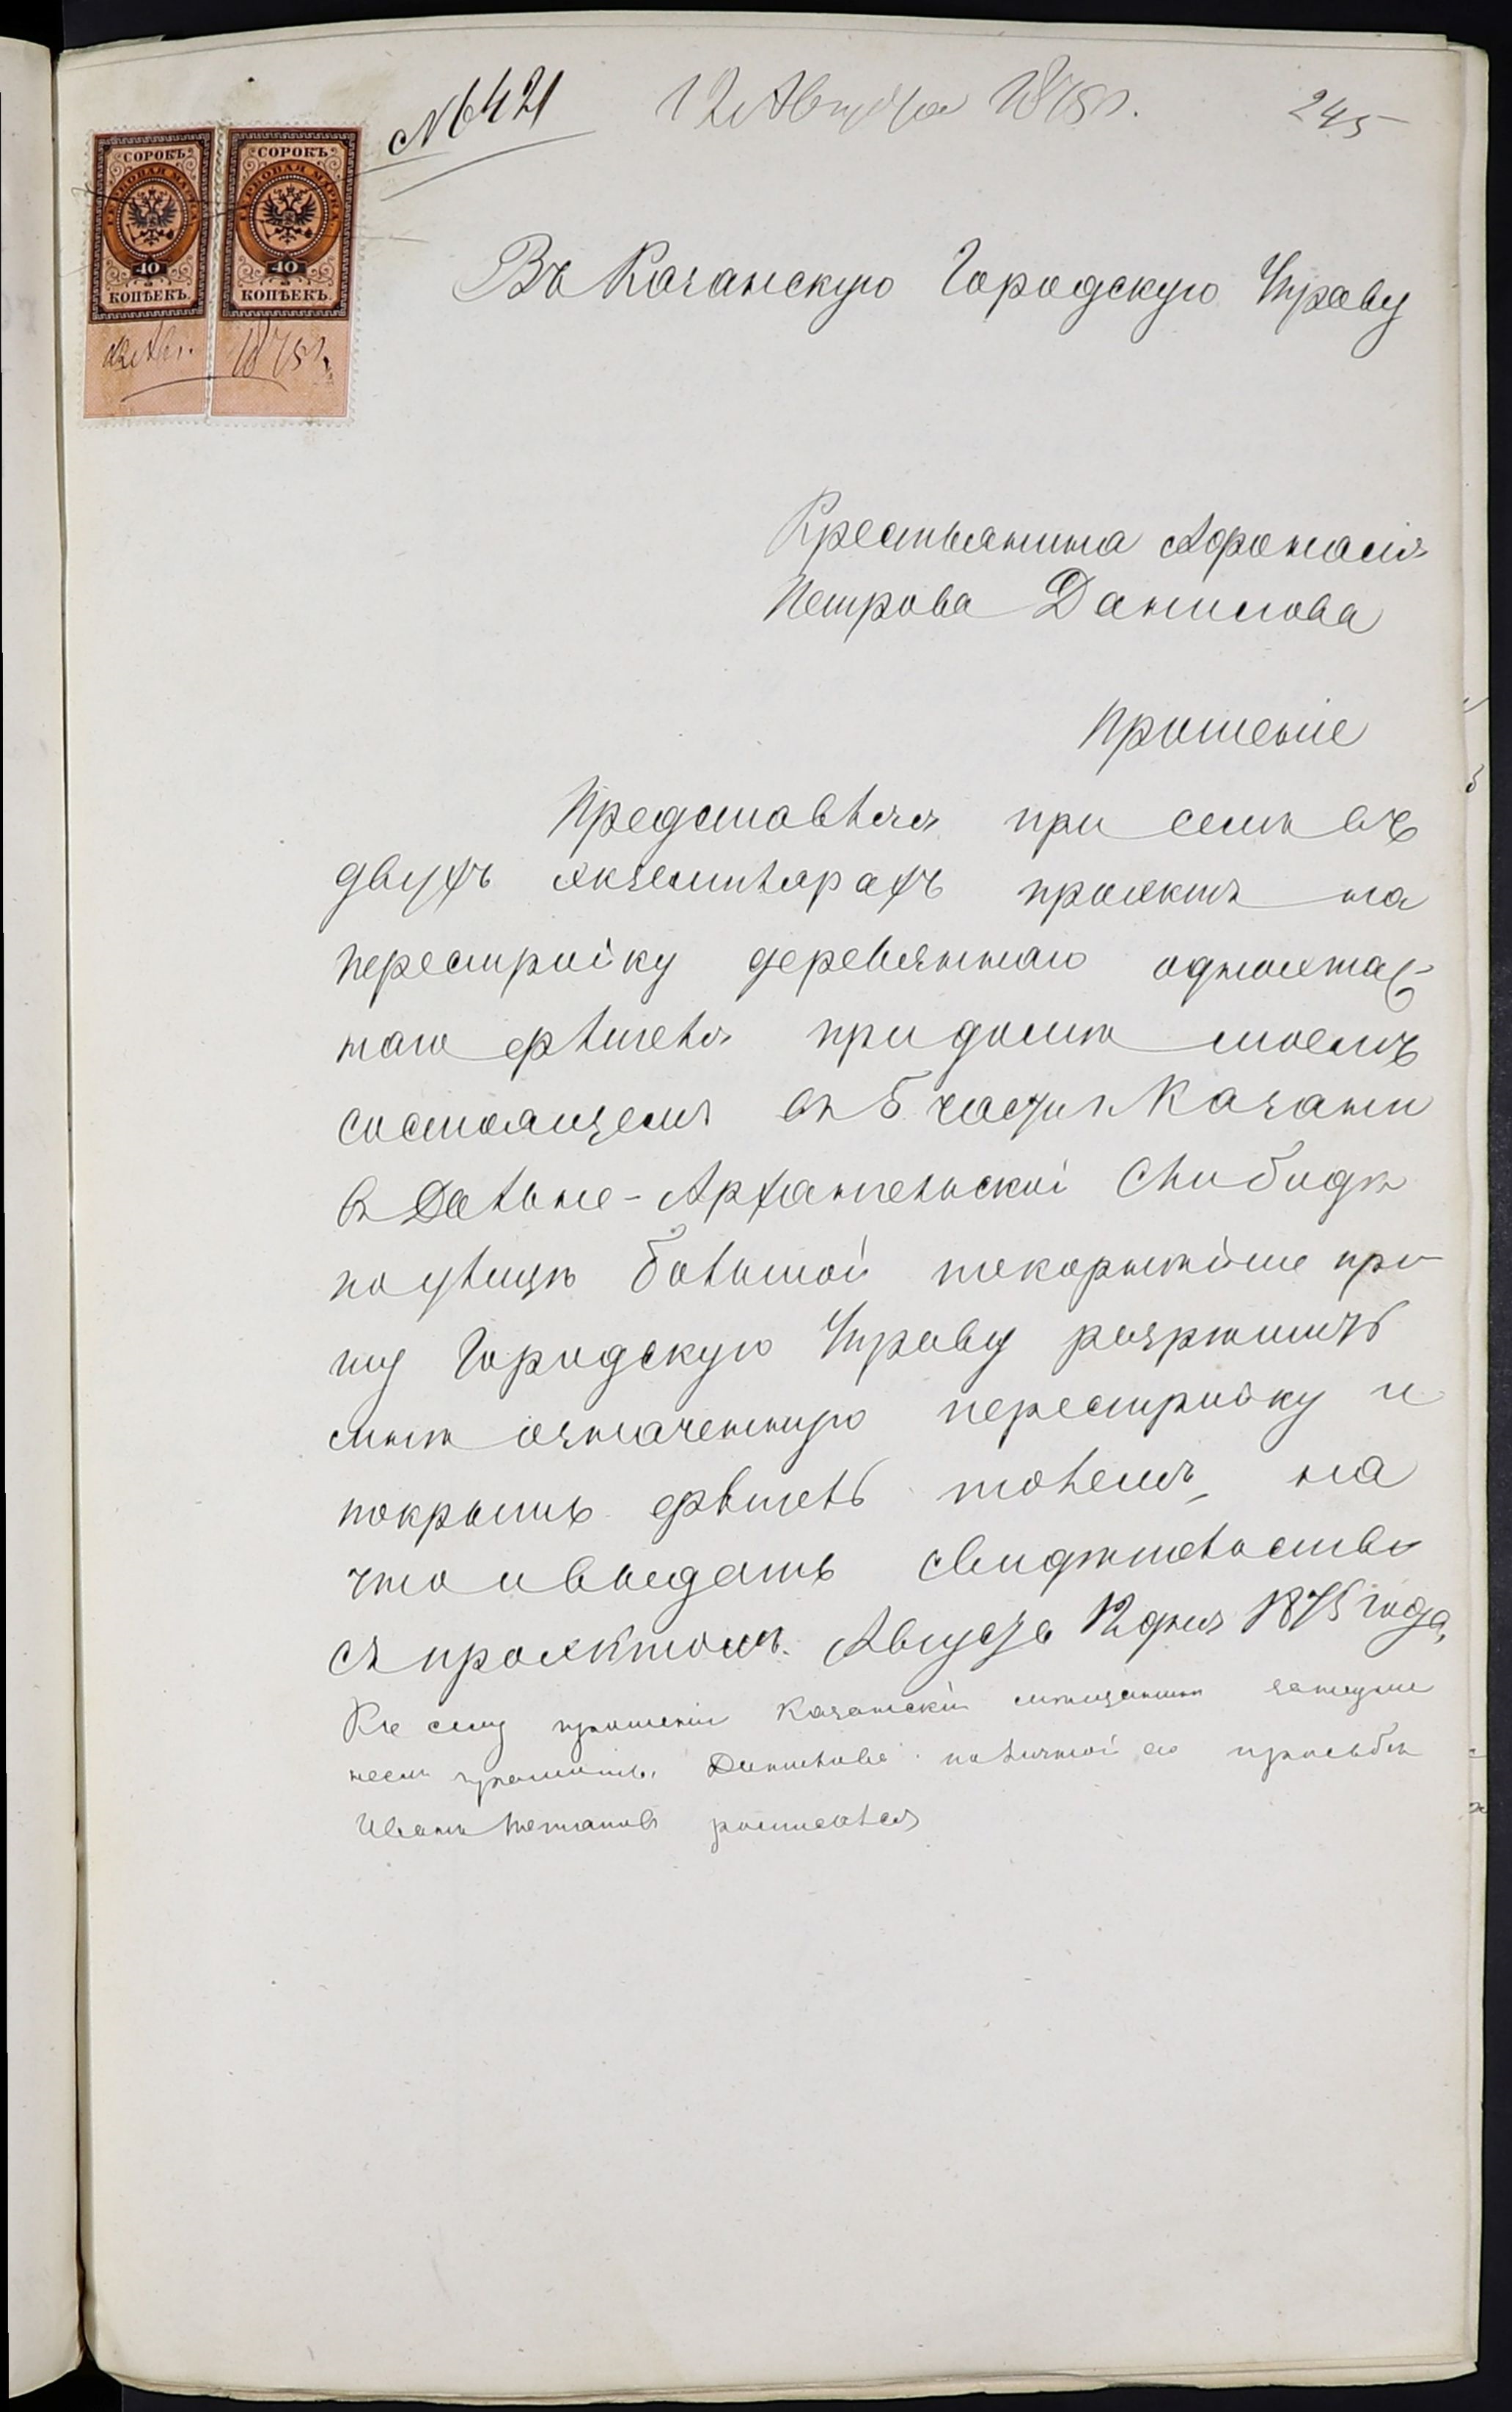 № 6421 12 Августа 1875 г. 245
СОРОКЪ СОРОКЪ
ГЕРБОВАЯ МАРКА ГЕРБОВАЯ МАРКА
40 40
КОПѢЕКЪ. КОПѢЕКЪ.
12 Авг. 1875 г.
Въ Казанскую Городскую Управу
Крестьянина Афонасія
Петрова Данилова
Прошеніе
Представляя при семъ въ
двухъ экземплярахъ проэктъ на
перестройку деревяннаго одноэтаж-
наго флигеля при домѣ моемъ
состоящемъ въ 5 части г. Казани
въ Дальне-Архангельской Слободѣ
по улицѣ большой покорнѣйше про-
шу Городскую Управу разрѣшить
мнѣ означенную перестройку и
покрыть флигель толемъ, на
что и выдать свидѣтельство
съ проэктомъ. Августа 12 дня 1875 года,
Къ сему прошенію Казанскій мѣщанинъ за
грамоты, Данилова по личной его прозьбѣ
Иванъ росписался